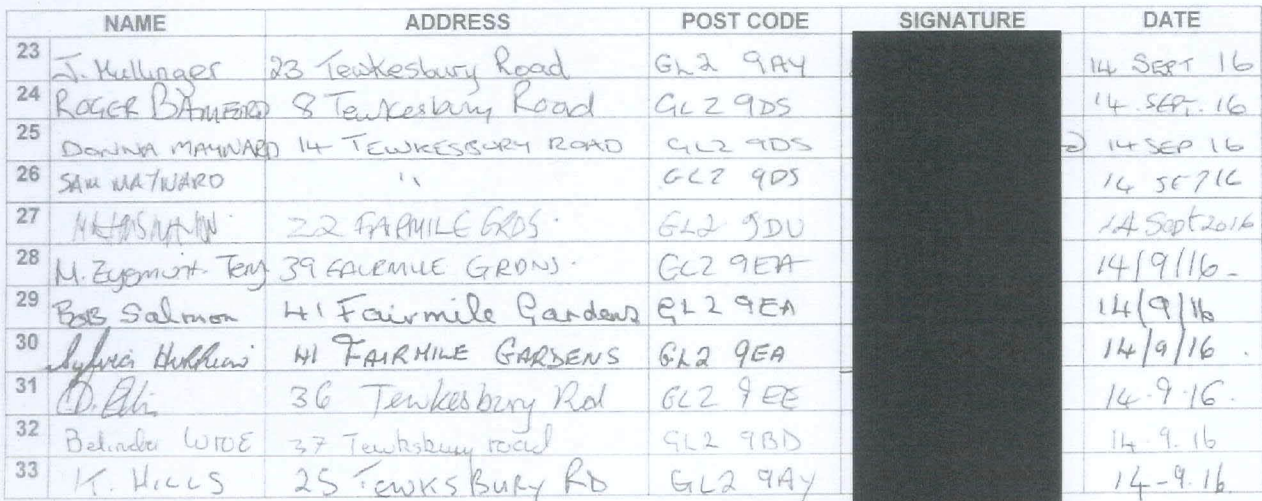 NAME ADDRESS POST CODE SIGNATURE DATE
23 J. Hullinger 23 Tewkesbury Road GL2 9AY 14 SEPT 16
24 ROGER BAMFORD 8 Tewkesbury Road GL2 9DS 14. SEPT. 16
25 DONNA MAYNARD 14 TEWKESBURY ROAD GL2 9DS 14 SEP 16
26 SAM MAYNARD " GL2 9DS 14 SEP 16
27 22 FAIRMILE GRDS. GL2 9DU 14 Sept 2016
28 M. Zygmunt- Terry 39 FAIRMILE GRDNS. GL2 9EA 14/9/16-
29 BOB Salmon 41 Fairmile Gardens GL2 9EA 14/9/16
30 Sylvia 41 FAIRMILE GARDENS GL2 9EA 14/9/16.
31 36 Tewkesbury Rd GL2 9EE 14.9.16.
32 Belinda WIDE 37 Tewksbury road GL2 9BD 14.9.16
33 K. HILLS 25 TEWKSBURY RD GL2 9AY 14-9.16